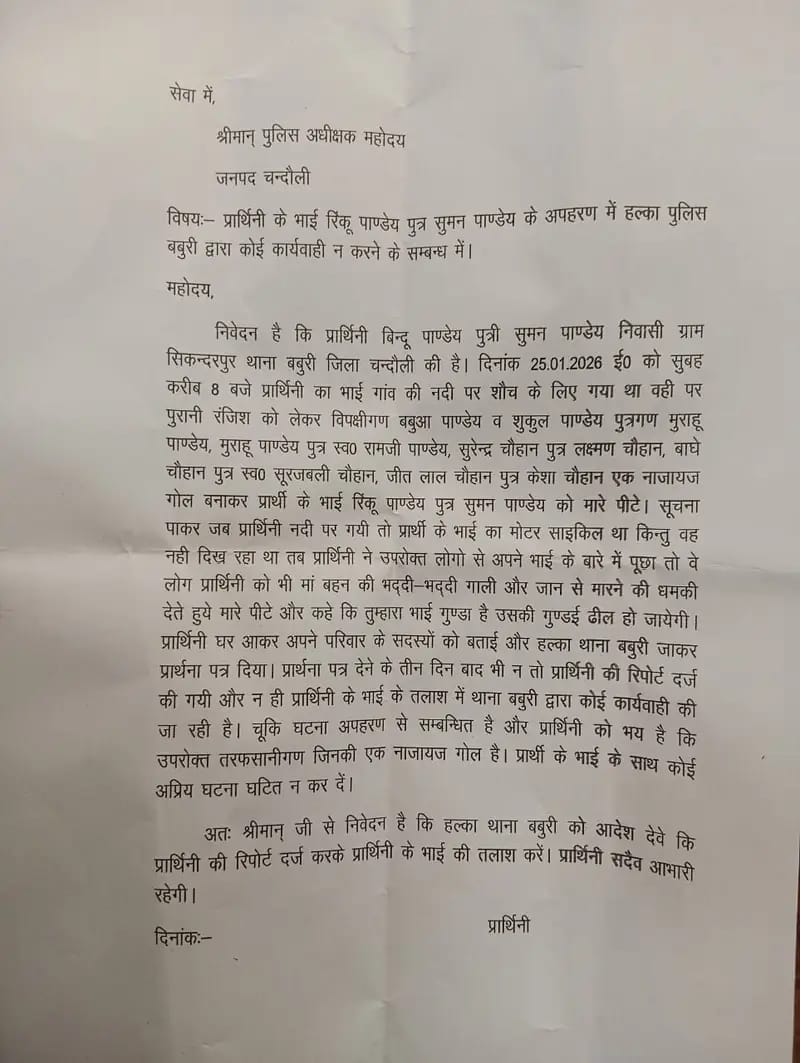 सेवा में,
श्रीमान् पुलिस अधीक्षक महोदय
जनपद चन्दौली
विषयः– प्रार्थिनी के भाई रिंकू पाण्डेय पुत्र सुमन पाण्डेय के अपहरण में हल्का पुलिस
बबुरी द्वारा कोई कार्यवाही न करने के सम्बन्ध में।
महोदय,
निवेदन है कि प्रार्थिनी बिन्दू पाण्डेय पुत्री सुमन पाण्डेय निवासी ग्राम
सिकन्दरपुर थाना बबुरी जिला चन्दौली की है। दिनांक 25.01.2026 ई0 को सुबह
करीब 8 बजे प्रार्थिनी का भाई गांव की नदी पर शौच के लिए गया था वही पर
पुरानी रंजिश को लेकर विपक्षीगण बबुआ पाण्डेय व शुकुल पाण्डेय पुत्रगण मुराहू
पाण्डेय, मुराहू पाण्डेय पुत्र स्व0 रामजी पाण्डेय, सुरेन्द्र चौहान पुत्र लक्ष्मण चौहान, बाघे
चौहान पुत्र स्व0 सूरजबली चौहान, जीत लाल चौहान पुत्र केशा चौहान एक नाजायज
गोल बनाकर प्रार्थी के भाई रिंकू पाण्डेय पुत्र सुमन पाण्डेय को मारे पीटे। सूचना
पाकर जब प्रार्थिनी नदी पर गयी तो प्रार्थी के भाई का मोटर साइकिल था किन्तु वह
नही दिख रहा था तब प्रार्थिनी ने उपरोक्त लोगो से अपने भाई के बारे में पूछा तो वे
लोग प्रार्थिनी को भी मां बहन की भद्दी–भद्दी गाली और जान से मारने की धमकी
देते हुये मारे पीटे और कहे कि तुम्हारा भाई गुण्डा है उसकी गुण्डई ढील हो जायेगी।
प्रार्थिनी घर आकर अपने परिवार के सदस्यों को बताई और हल्का थाना बबुरी जाकर
प्रार्थना पत्र दिया। प्रार्थना पत्र देने के तीन दिन बाद भी न तो प्रार्थिनी की रिपोर्ट दर्ज
की गयी और न ही प्रार्थिनी के भाई के तलाश में थाना बबुरी द्वारा कोई कार्यवाही की
जा रही है। चूकि घटना अपहरण से सम्बन्धित है और प्रार्थिनी को भय है कि
उपरोक्त तरफसानीगण जिनकी एक नाजायज गोल है। प्रार्थी के भाई के साथ कोई
अप्रिय घटना घटित न कर दें।
अतः श्रीमान् जी से निवेदन है कि हल्का थाना बबुरी को आदेश देवे कि
प्रार्थिनी की रिपोर्ट दर्ज करके प्रार्थिनी के भाई की तलाश करें। प्रार्थिनी सदैव आभारी
रहेगी।
प्रार्थिनी
दिनांकः–